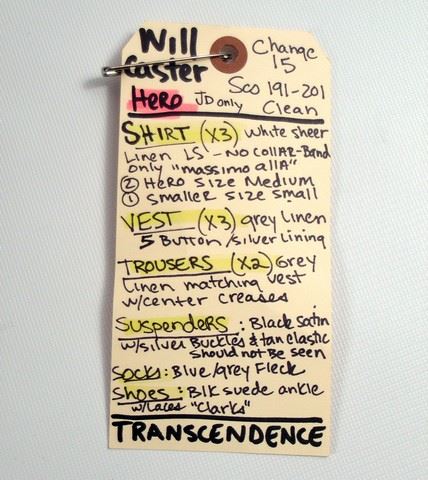 Will Change
Caster 15
HERO JD only Scs 191-201
Clean
SHIRT (X3) White sheer
Linen LS - NO COLLAR-Band
only "massimo alla"
② HERO SIZE MEDIUM
① SMALLER SIZE SMALL
VEST (X3) grey linen
5 BUTTON/silver Lining
TROUSERS (X2) Grey
Linen matching vest
w/center creases
Suspenders: Black Satin
w/silver Buckles & tan elastic
Should not Be seen
Socks: Blue/grey Fleck
Shoes: Blk suede ankle
w/Laces "Clarks"
TRANSCENDENCE